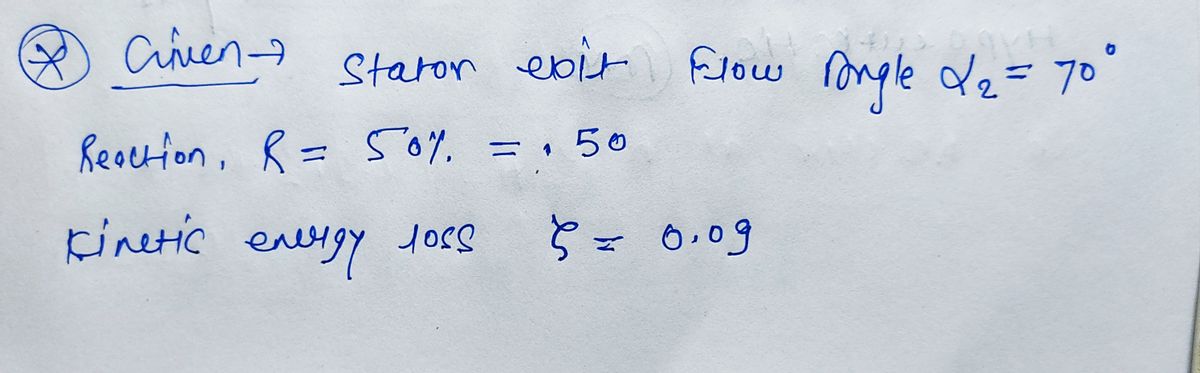 Given → Stator exit Flow Angle α₂ = 70°
Reaction, R = 50% = .50
Kinetic energy loss ζ = 0.09